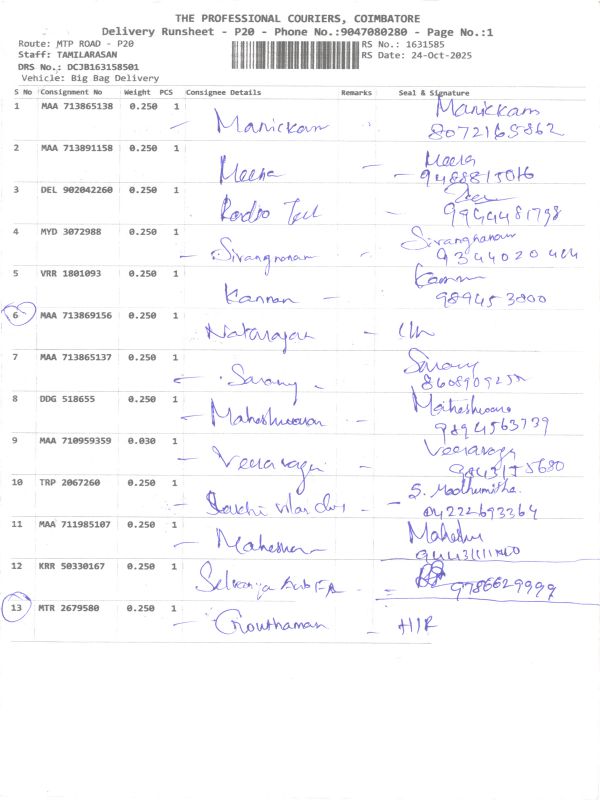 THE PROFESSIONAL COURIERS, COIMBATORE
Delivery Runsheet - P20 - Phone No.:9047080280 - Page No.:1
Route: MTP ROAD - P20 RS No.: 1631585
Staff: TAMILARASAN RS Date: 24-Oct-2025
DRS No.: DCJB163158501
Vehicle: Big Bag Delivery
S No Consignment No Weight PCS Consignee Details Remarks Seal & Signature
1 MAA 713865138 0.250 1 Manickam Manickam
8072165862
2 MAA 713891158 0.250 1 Meena Meena
9488815016
3 DEL 902042260 0.250 1
9944481798
4 MYD 3072988 0.250 1 Sivangnanam Sivangnanam
9344020464
5 VRR 1801093 0.250 1 Kannan
989453800
6 MAA 713869156 0.250 1 Natarajan
7 MAA 713865137 0.250 1 Sarany Sarany
8 DDG 518655 0.250 1 Maheshwaran
9894563739
9 MAA 710959359 0.030 1 Veeraragu Veeraragu
10 TRP 2067260 0.250 1 Sakthi S. Madhumitha
04222693364
11 MAA 711985107 0.250 1
12 KRR 50330167 0.250 1
9786629999
13 MTR 2679580 0.250 1 Gouthaman